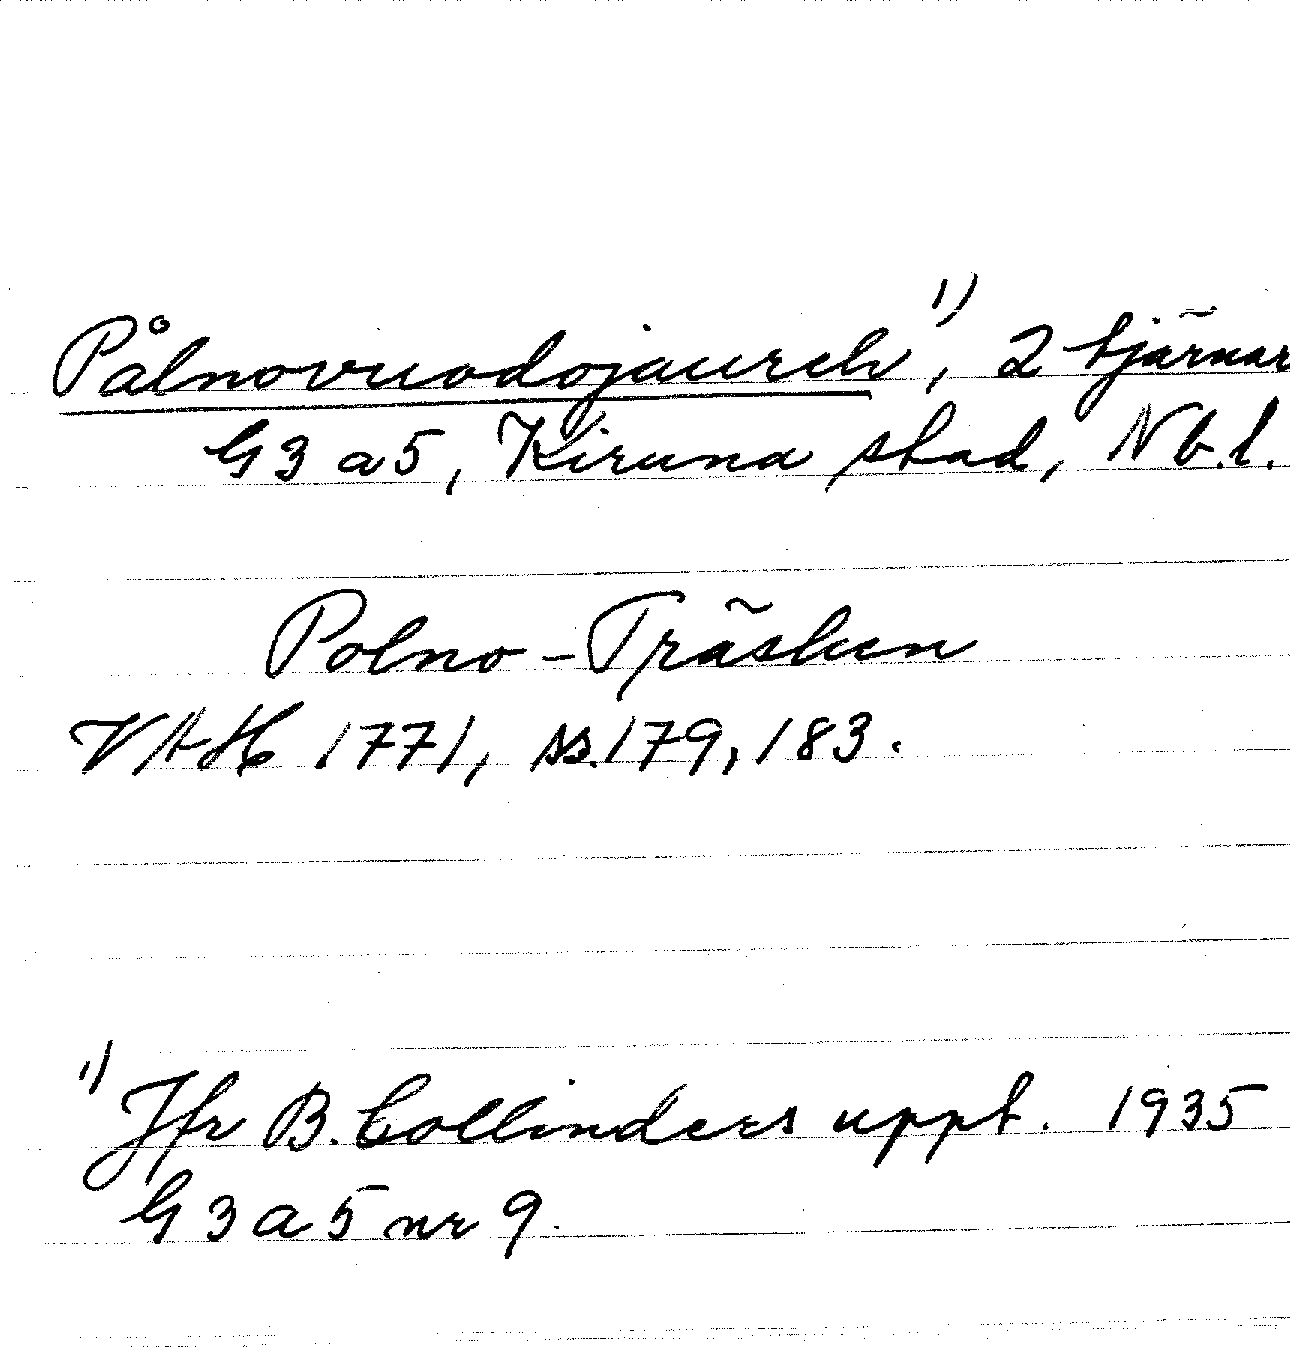 Pålnovuodojaureh¹⁾, 2 tjärnar
G3 a5, Kiruna stad, Nb.l.
Polno-Träsken
VAH 1771, ss. 179, 183.
¹⁾ Jfr B. Collinders uppt. 1935
G 3 a 5 nr 9.